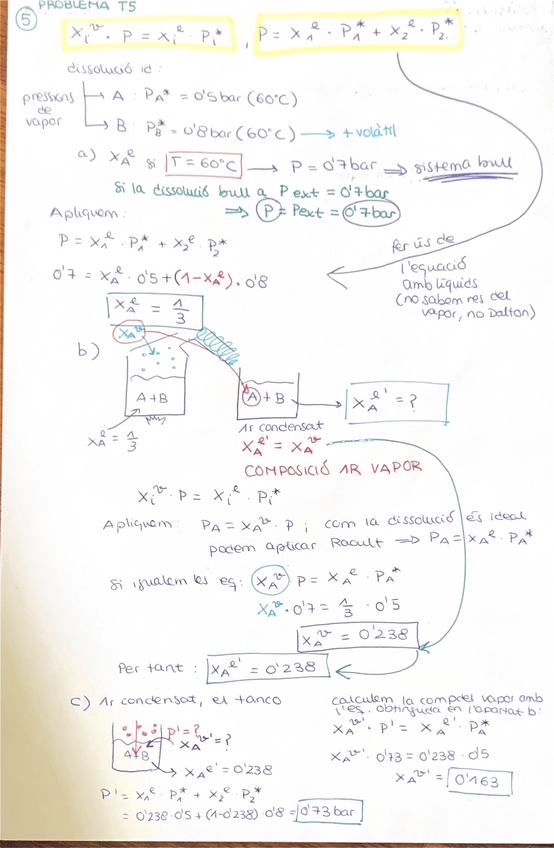 PROBLEMA T5
5
xᵢᵛ · P = xᵢˡ · Pᵢ* , P = x₁ˡ · P₁* + x₂ˡ · P₂*
dissolució id:
pressions de vapor
A : P_A* = 0'5 bar (60°C)
B : P_B* = 0'8 bar (60°C) → + volàtil
a) x_Aˡ si T = 60°C → P = 0'7 bar ⇒ sistema bull
Si la dissolució bull a P ext = 0'7 bar
⇒ P = Pext = 0'7 bar
Apliquem:
P = x₁ˡ · P₁* + x₂ˡ · P₂*
0'7 = x_Aˡ · 0'5 + (1-x_Aˡ) · 0'8
Per ús de
l'equació
amb líquids
(no sabem res del
vapor, no Dalton)
x_Aˡ = 1/3
x_Aᵛ
b)
A + B
x_Aˡ = 1/3
A + B
x_Aˡ' = ?
1r condensat
x_Aˡ' = x_Aᵛ
COMPOSICIÓ 1R VAPOR
xᵢᵛ · P = xᵢˡ · Pᵢ*
Apliquem: P_A = x_Aᵛ · P ; com la dissolució és ideal
podem aplicar Raoult ⇒ P_A = x_Aˡ · P_A*
Si igualem les eq: x_Aᵛ · P = x_Aˡ · P_A*
x_Aᵛ · 0'7 = 1/3 · 0'5
x_Aᵛ = 0'238
Per tant : x_Aˡ' = 0'238
c) 1r condensat, el tanco
P' = ?
x_Aᵛ' = ?
A+B
x_Aˡ' = 0'238
P' = x₁ˡ · P₁* + x₂ˡ · P₂*
= 0'238 · 0'5 + (1-0'238) · 0'8 = 0'73 bar
calculem la comp del vapor amb
l'eq. obtinguda en l'apartat b:
x_Aᵛ' · P' = x_Aˡ' · P_A*
x_Aᵛ' · 0'73 = 0'238 · 0'5
x_Aᵛ' = 0'163